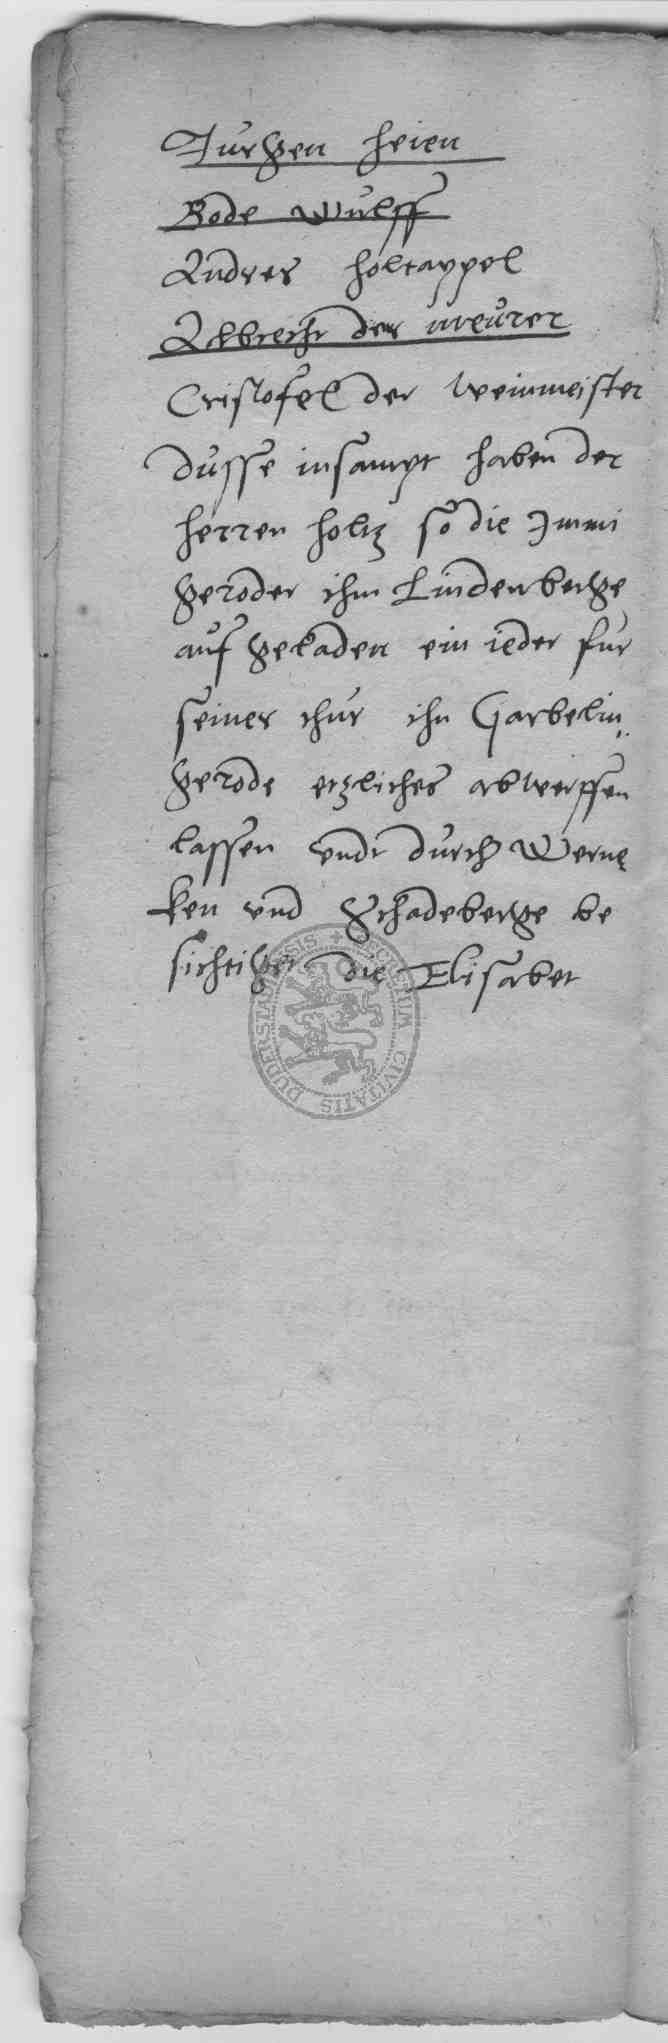 Jurgen heien
Bode wulff
Andres holtappel
Albrecht der meurer
Cristofel der weinmeister
dusse insampt haben der
herren holtz so die Immi
geroder ihm Lindenberge
auf geladen ein ieder fur
seiner thur ihn Garbelin„
gerode etzliches abwerffen
lassen undt durch Werne
ken und Schadeberge be
sichtiget die Elisabet
SECRETUM CIVITATIS DUDERSTADENSIS